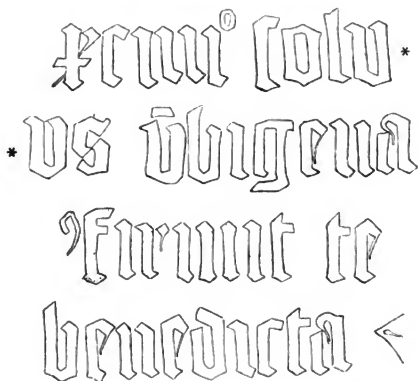 xciiiiº solv*
*vs v̄bigena
ꝯfirmit te
benedicta <